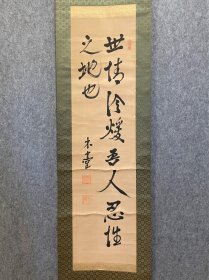 世情冷煖吾人忍性
之地也
木堂